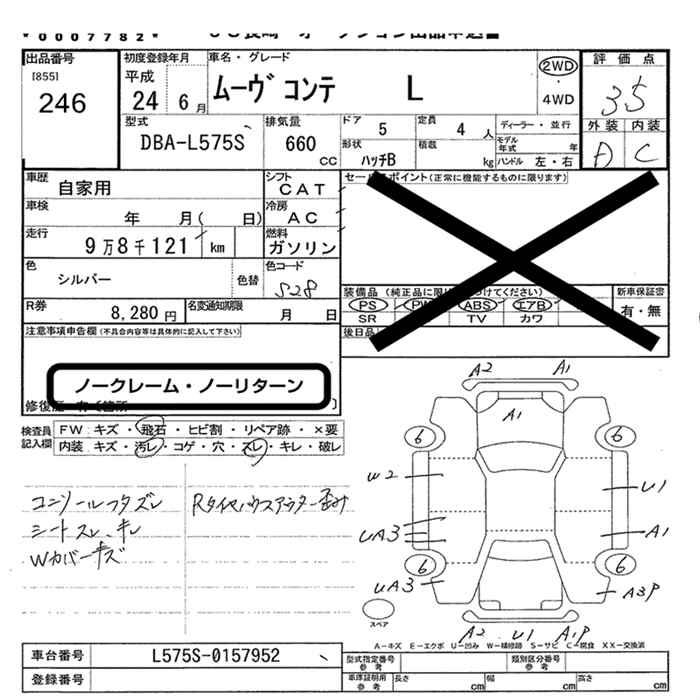 *0007782*
出品番号 初度登録年月 車名・グレード 評価点
[855] 平成 ムーヴ コンテ L 2WD
246 24 6月 4WD 35
型式 排気量 ドア 5 定員 4人 ディーラー・並行 外装 内装
DBA-L575S 660 CC 形状 ハッチB 積載 kg モデル年式 年 A C
ハンドル 左・右
車歴 自家用 シフト CAT セールスポイント(正常に機能するものに限ります)
車検 年 月( 日) 冷房 AC
走行 9万8千121 km 燃料 ガソリン
色 シルバー 色替 色コード S28 装備品 (純正品に限り つけてください) 新車保証書
PS PW ABS エアB 有・無
R券 8,280円 名変通知期限 月 日 SR TV カワ
注意事項申告欄(不具合内容等は具体的に記入して下さい) 後日品
ノークレーム・ノーリターン
修復歴
検査員記入欄 FW キズ・飛石・ヒビ割・リペア跡・×要
内装 キズ・汚レ・コゲ・穴・スレ・キレ・破レ
コンソールフタズレ Rタイヤハウスアウター歪み
シートスレ、キレ
Wカバーキズ
A2 A1
A1
6 6
W2 U1
UA3 A1
6 6
UA3 A3P
スペア
A2 U1 A1P
A-キズ E-エクボ U-凹み W-補修跡 S-サビ C-腐食 XX-交換済
車台番号 L575S-0157952 型式指定番号 参考 類別区分番号 参考
登録番号 車庫証明用 参考 長さ cm 幅 cm 高さ cm